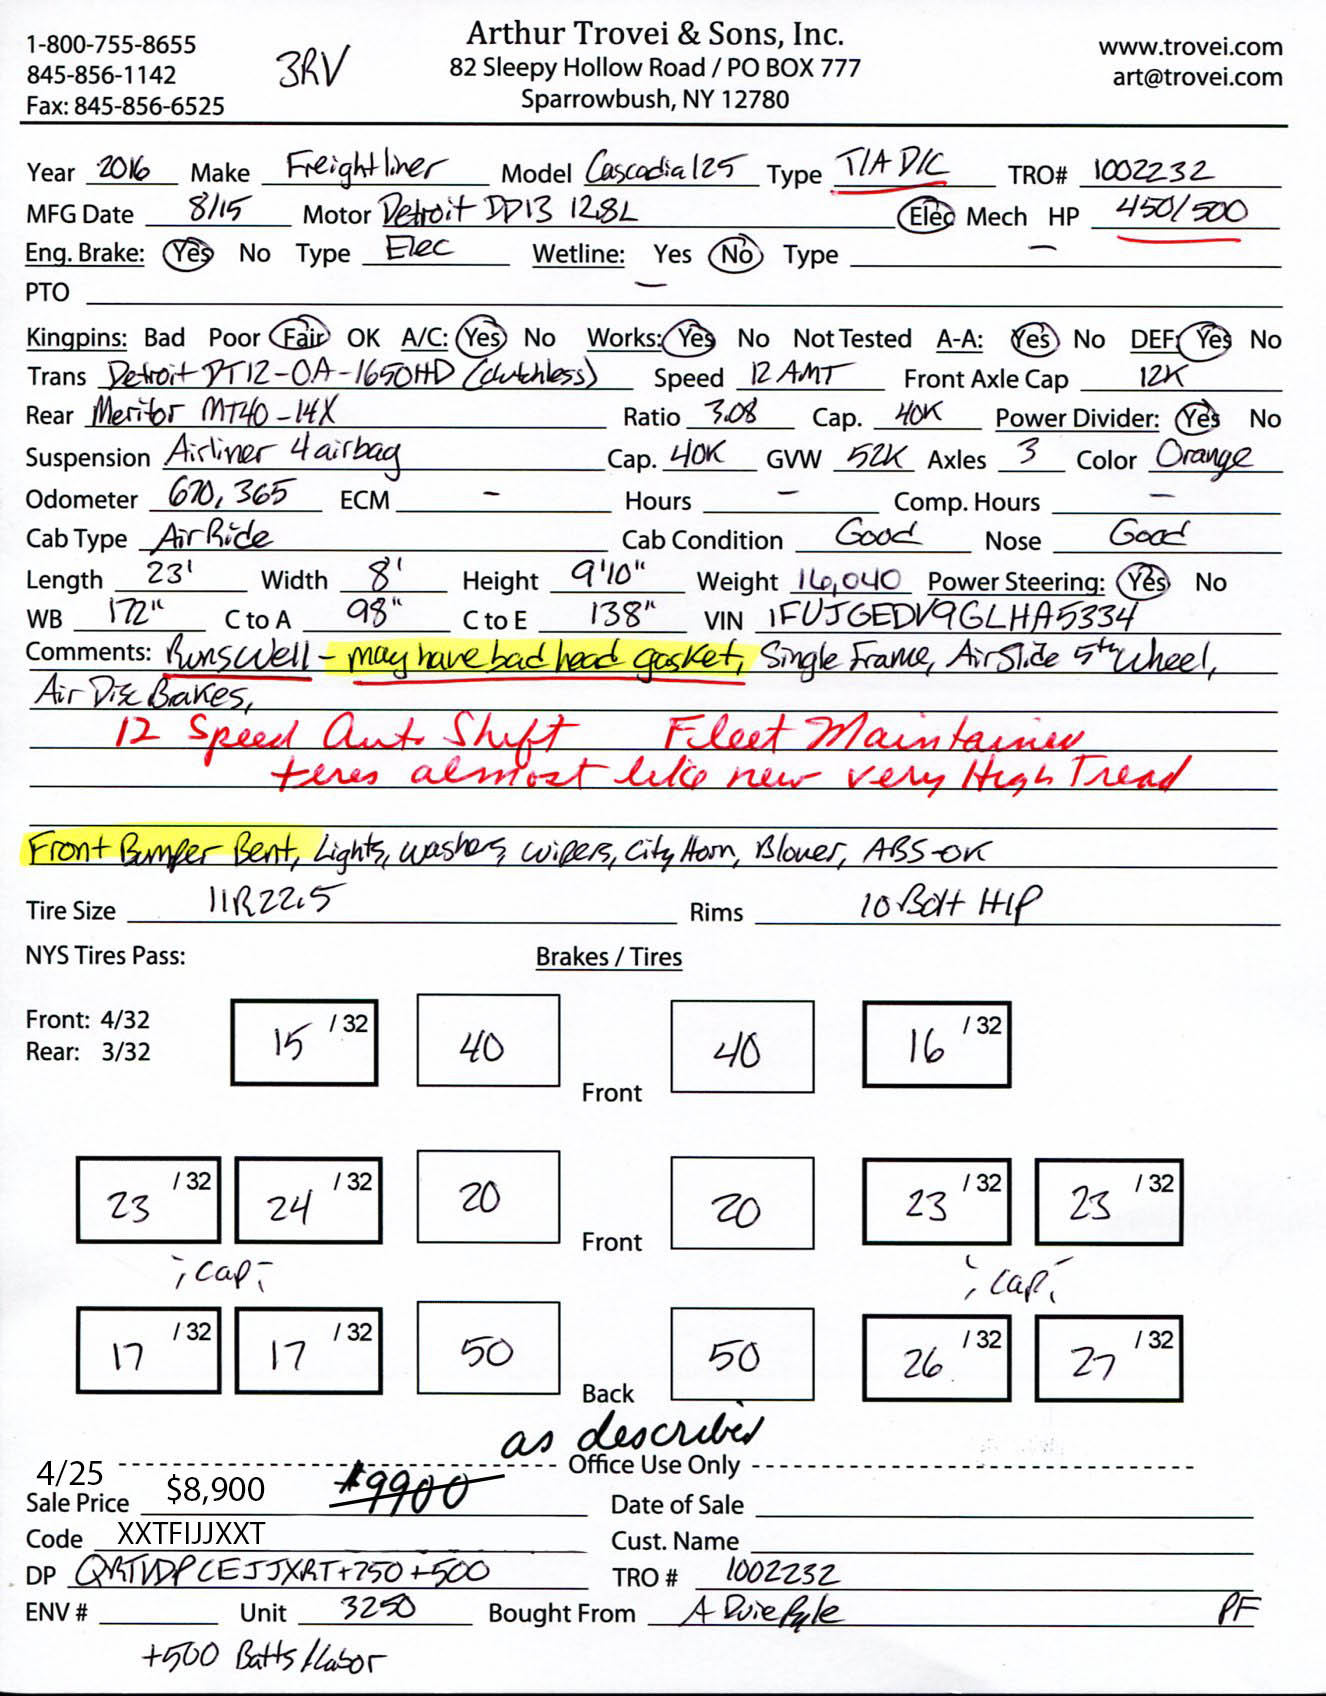 1-800-755-8655
845-856-1142
Fax: 845-856-6525
3RV
Arthur Trovei & Sons, Inc.
82 Sleepy Hollow Road / PO BOX 777
Sparrowbush, NY 12780
www.trovei.com
art@trovei.com
Year 2016 Make Freightliner Model Cascadia 125 Type T/A D/C TRO# 1002232
MFG Date 8/15 Motor Detroit DD13 12.8L Elec Mech HP 450/500
Eng. Brake: Yes No Type Elec Wetline: Yes No Type —
PTO —
Kingpins: Bad Poor Fair OK A/C: Yes No Works: Yes No Not Tested A-A: Yes No DEF: Yes No
Trans Detroit DT12-OA-1650HD (clutchless) Speed 12 AMT Front Axle Cap 12K
Rear Meritor MT40-14X Ratio 3.08 Cap. 40K Power Divider: Yes No
Suspension Airliner 4 airbag Cap. 40K GVW 52K Axles 3 Color Orange
Odometer 670,365 ECM - Hours - Comp. Hours -
Cab Type Air Ride Cab Condition Good Nose Good
Length 23' Width 8' Height 9'10" Weight 16,040 Power Steering: Yes No
WB 172" C to A 98" C to E 138" VIN 1FUJGEDV9GLHA5334
Comments: Runs Well - may have bad head gasket, Single Frame, Air Slide 5th Wheel,
Air Disc Brakes,
12 Speed Auto Shift Fleet Maintained
tires almost like new very High Tread
Front Bumper Bent, Lights, washers, wipers, City Horn, Blower, ABS-OK
Tire Size 11R22.5 Rims 10 Bolt H/P
NYS Tires Pass: Brakes / Tires
Front: 4/32
Rear: 3/32
15 /32 40 Front 40 16 /32
23 /32 24 /32 20 Front 20 23 /32 23 /32
"cap" "cap"
17 /32 17 /32 50 Back 50 26 /32 27 /32
as described
Office Use Only
4/25
Sale Price $8,900 $9900 Date of Sale
Code XXTFIJJXXT Cust. Name
DP QRTVDPCEJJXRT+750+500 TRO # 1002232
ENV # Unit 3250 Bought From A Duie Pyle PF
+500 Batts/Labor